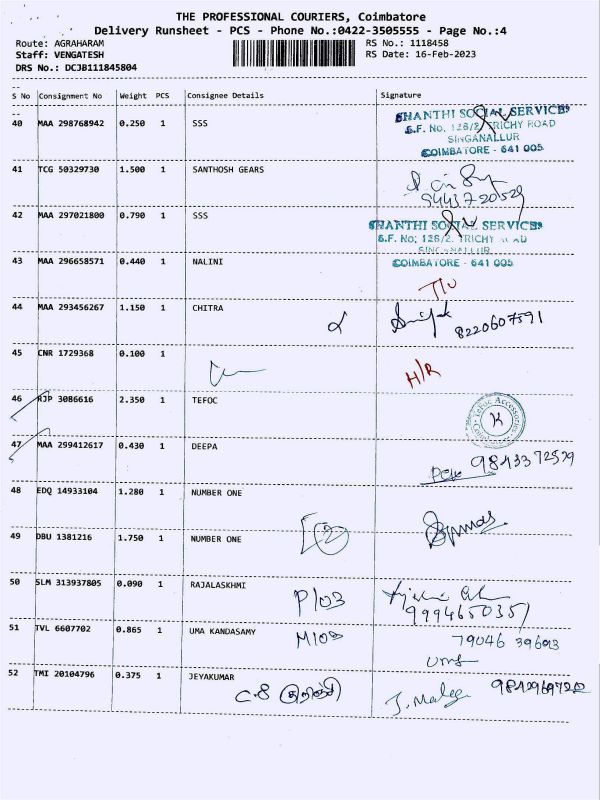 THE PROFESSIONAL COURIERS, Coimbatore
Delivery Runsheet - PCS - Phone No.:0422-3505555 - Page No.:4
Route: AGRAHARAM
Staff: VENGATESH
DRS No.: DCJB111845804
RS No.: 1118458
RS Date: 16-Feb-2023
S No Consignment No Weight PCS Consignee Details Signature
40 MAA 298768942 0.250 1 SSS
SHANTHI SOCIAL SERVICES
S.F. No. 128/2, TRICHY ROAD
SINGANALLUR
COIMBATORE - 641 005
41 TCG 50329730 1.500 1 SANTHOSH GEARS
9443720529
42 MAA 297021800 0.790 1 SSS
SHANTHI SOCIAL SERVICES
S.F. No; 128/2. TRICHY
COIMBATORE - 641 005
43 MAA 296658571 0.440 1 NALINI
44 MAA 293456267 1.150 1 CHITRA
8220607591
45 CNR 1729368 0.100 1
H/R
46 RJP 3086616 2.350 1 TEFOC
K
47 MAA 299412617 0.430 1 DEEPA
48 EDQ 14933104 1.280 1 NUMBER ONE
49 DBU 1381216 1.750 1 NUMBER ONE
50 SLM 313937805 0.090 1 RAJALASKHMI
P/03
9994650351
51 TVL 6607702 0.865 1 UMA KANDASAMY
79046 39603
uma
52 TMI 20104796 0.375 1 JEYAKUMAR